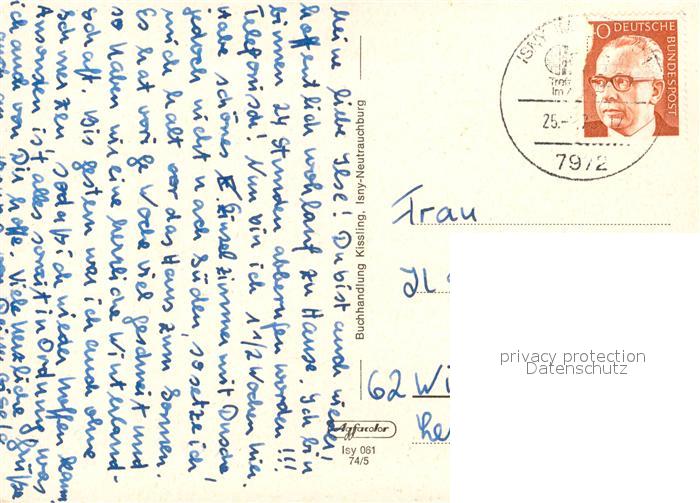 Meine liebe Ilse! Du bist auch wieder,
hoffentlich wohlauf zu Hause. Ich bin
binnen 24 Stunden abberufen worden!!!
Telefonisch! Nun bin ich 1 1/2 Wochen hier.
Habe schönes Einzelzimmer mit Dusche,
jedoch nicht nach Süden, so setze ich
mich halt vor das Haus zum Sonnen.
Es hat vorige Woche viel geschneit und
so haben wir eine herrliche Winterland-
schaft. Bis gestern war ich auch ohne
Schmerzen, sodaß ich wieder hoffen kann.
Ansonsten ist alles soweit in Ordnung, was
ich auch von Dir hoffe. Viele herzliche Grüße
Buchhandlung Kissling, Isny-Neutrauchburg
DEUTSCHE
BUNDESPOST
ISNY
Im
25.
7972
Frau
62 Wi
Agfacolor
Isy 061
74/5
privacy protection
Datenschutz